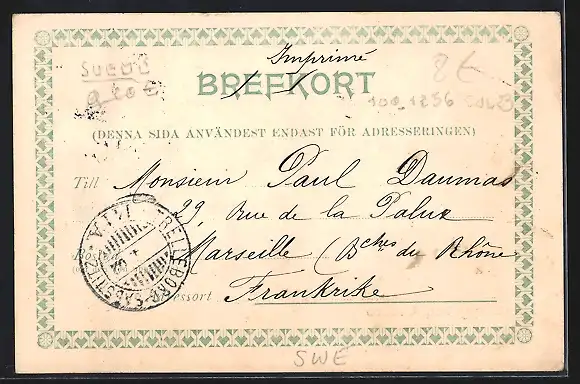 Imprimé
SUEDE
8€
BREFKORT
(DENNA SIDA ANVÄNDEST ENDAST FÖR ADRESSERINGEN)
Till Monsieur Paul Daumas
29, rue de la Palud
Marseille (Bches du Rhône
Frankrike
TRELLEBORG-SASSNITZ
SWE